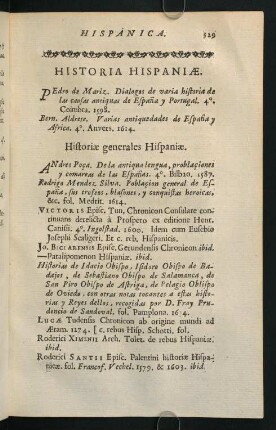 HISPANICA. 329
HISTORIA HISPANIÆ.
PEdro de Mariz. Dialogos de varia historia de
las cosas antiguas de España y Portugal. 4º.
Coimbra. 1598.
Bern. Aldrete. Varias antiguedades de España y
Africa. 4º. Anvers. 1614.
Historiæ generales Hispaniæ.
ANdres Poça. De la antiqua lengua, problaciones
y comarcas de las Españas. 4º. Bilbao. 1587.
Rodrigo Mendez Silva. Poblacion general de Es-
paña, sus trofeos, blasones, y conquistas heroicas,
&c. fol. Medrit. 1614.
VICTORIS Episc. Tun. Chronicon Consulare con-
tinuans derelicta à Prospero ex editione Henr.
Canisii. 4º. Ingolstad. 1600. Idem cum Eusebio
Josephi Scaligeri. Et c. reb. Hispanicis.
Jo. BICLARENSIS Episc. Gerundensis Chronicon ibid.
—Paralipomenon Hispaniæ. ibid.
Historias de Idacio Obispo, Isidoro Obispo de Ba-
dajos, de Sebastiano Obispo de Salamanca, de
San Piro Obispo de Astorga, de Pelagio Obispo
de Oviedo. con otras notas tocantes a estas histo-
rias y Reyes dellos, recogidas por D. Fray Pru-
dencio de Sandoval. fol. Pamplona. 1634.
LUCÆ Tudensis Chronicon ab origine mundi ad
Æram. 1274. [c. rebus Hisp. Schotti. fol.
Roderici XIMENII Arch. Tolet. de rebus Hispaniæ.
ibid.
Roderici SANTII Episc. Palentini historiæ Hispa-
nicæ. fol. Francof. Vechel. 1579. & 1603. ibid.